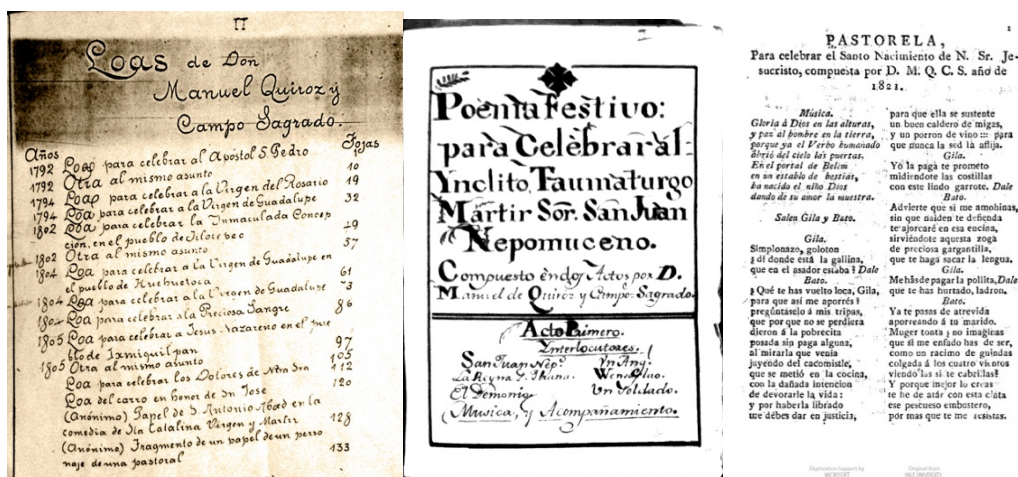 II
Loas de Don
Manuel Quiroz y
Campo Sagrado.
Años Fojas
1792 Loa para celebrar al Apostol S. Pedro
1792 Otra al mismo asunto 10
1794 Loa para celebrar a la Virgen del Rosario 19
1794 Loa para celebrar a la Virgen de Guadalupe 32
1802 Loa para celebrar la Inmaculada Concep
ción, en el pueblo de Jilotepec 49
1802 Otra al mismo asunto 57
1804 Loa para celebrar a la Virgen de Guadalupe en
el pueblo de Huehuetoca 61
1804 Loa para celebrar a la Virgen de Guadalupe 73
1804 Loa para celebrar a la Preciosa Sangre 86
1805 Loa para celebrar a Jesus Nazareno en el pue
blo de Ixmiquilpan 97
1805 Otra al mismo asunto 105
Loa para celebrar los Dolores de Ntra Sra 112
Loa del carro en honor de Sn Jose 120
(Anónimo) Papel de S. Antonio Abad en la
comedia de Sta Catalina Virgen y Martir 128
(Anónimo) Fragmento de un papel de un perso
naje de una pastoral 133
Poema Festivo:
para Celèbrar al
Ynclito, Taumaturgo
Màrtir Sor. San Juan
Nepomuceno.
Compuesto en dos Actos por D.
Manuel de Quiroz y Campo Sagrado.
Acto Primero.
Ynterlocutores.
San Juan Nepo. Un Angl
La Reyna Wenseslao.
El Demonio Un Soldado.
Musica, y Acompañamiento.
1
PASTORELA,
Para celebrar el Santo Nacimiento de N. Sr. Je-
sucristo, compuesta por D. M. Q. C. S. año de
1821.
Música.
Gloria á Dios en las alturas,
y paz al hombre en la tierra,
porque ya el Verbo humanado
abrió del cielo las puertas.
En el portal de Belem
en un establo de bestias,
ha nacido el niño Dios
dando de su amor la muestra.
Salen Gila y Bato.
Gila.
Simplonazo, goloton
¿di donde está la gallina,
que en el asador estaba? Dale
Bato.
¿Qué te has vuelto loca, Gila,
para que así me aporrés?
pregúntaselo á mis tripas,
que por que no se perdiera
dieron á la pobrecita
posada sin paga alguna,
al mirarla que venia
juyendo del cacomistle,
que se metió en la cocina,
con la dañada intencion
de devorarle la vida:
y por haberla librado
me debes dar en justicia,
para que ella se sustente
un buen caldero de migas,
y un porron de vino para
que nunca la sed la aflija.
Gila.
Yo la paga te prometo
midiendote las costillas
con este lindo garrote. Dale
Bato.
Advierte que si me amohinas,
sin que naiden te defienda
te ajorcaré en esa encina,
sirviéndote aquesta zoga
de preciosa gargantilla,
que te haga sacar la lengua.
Gila.
Me hás de pagar la pollita, Dale
que te has hurtado, ladron.
Bato.
Ya te pasas de atrevida
aporreando á tu marido.
Muger tonta ¿no imaginas
que si me enfado has de ser,
como un racimo de guindas
colgada á los cuatro vientos
viendo las si te cabrillas?
Y porque mejor lo creas
te he de atár con esta cinta
ese pescuezo embustero,
por mas que te me resistas.
Digitization Support by
MICROSOFT
Original from
YALE UNIVERSITY